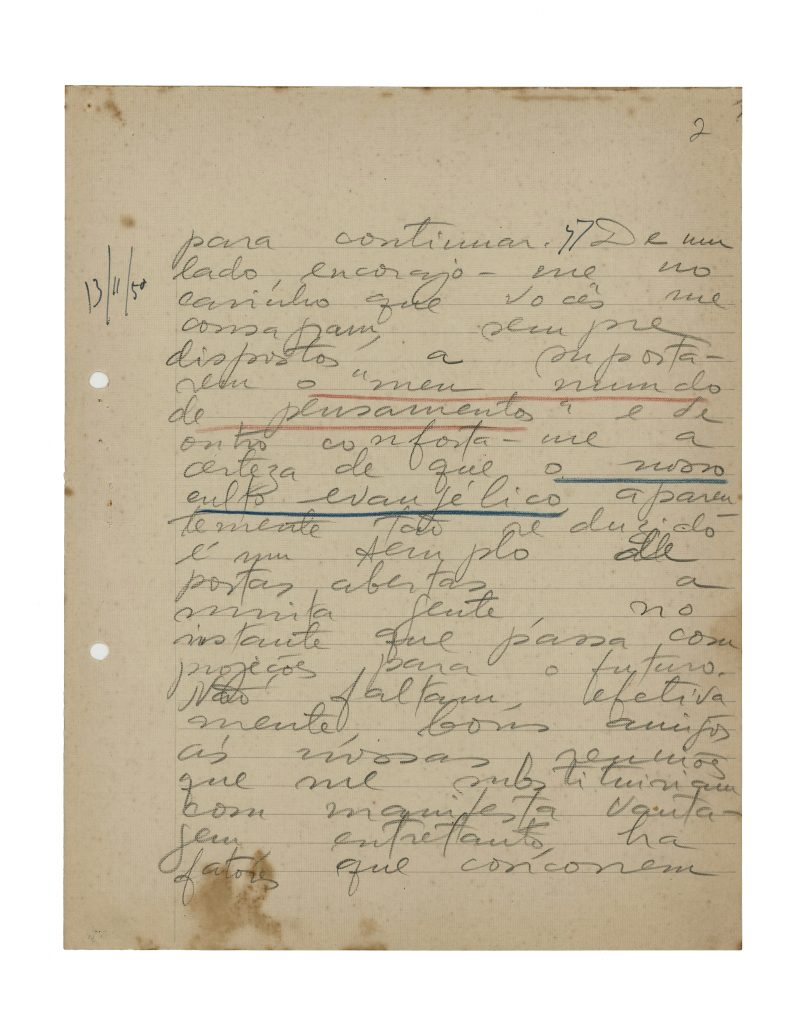 2
para continuar. 47 De um
13/11/50
lado, encorajo-me no
carinho que vocês me
consagram, sempre
dispostos a suporta-
rem o "meu mundo
de pensamentos" e de
outro conforta-me a
certeza de que o nosso
culto evangélico aparen
temente tão reducido
é um templo de
portas abertas a
muita gente, no
instante que passa com
projeções para o futuro.
Não faltam, efetiva
mente, bons amigos
ás nossas reuniões
que me substituiriam
com manifesta vanta-
gem entretanto, ha
fatores que concorrem